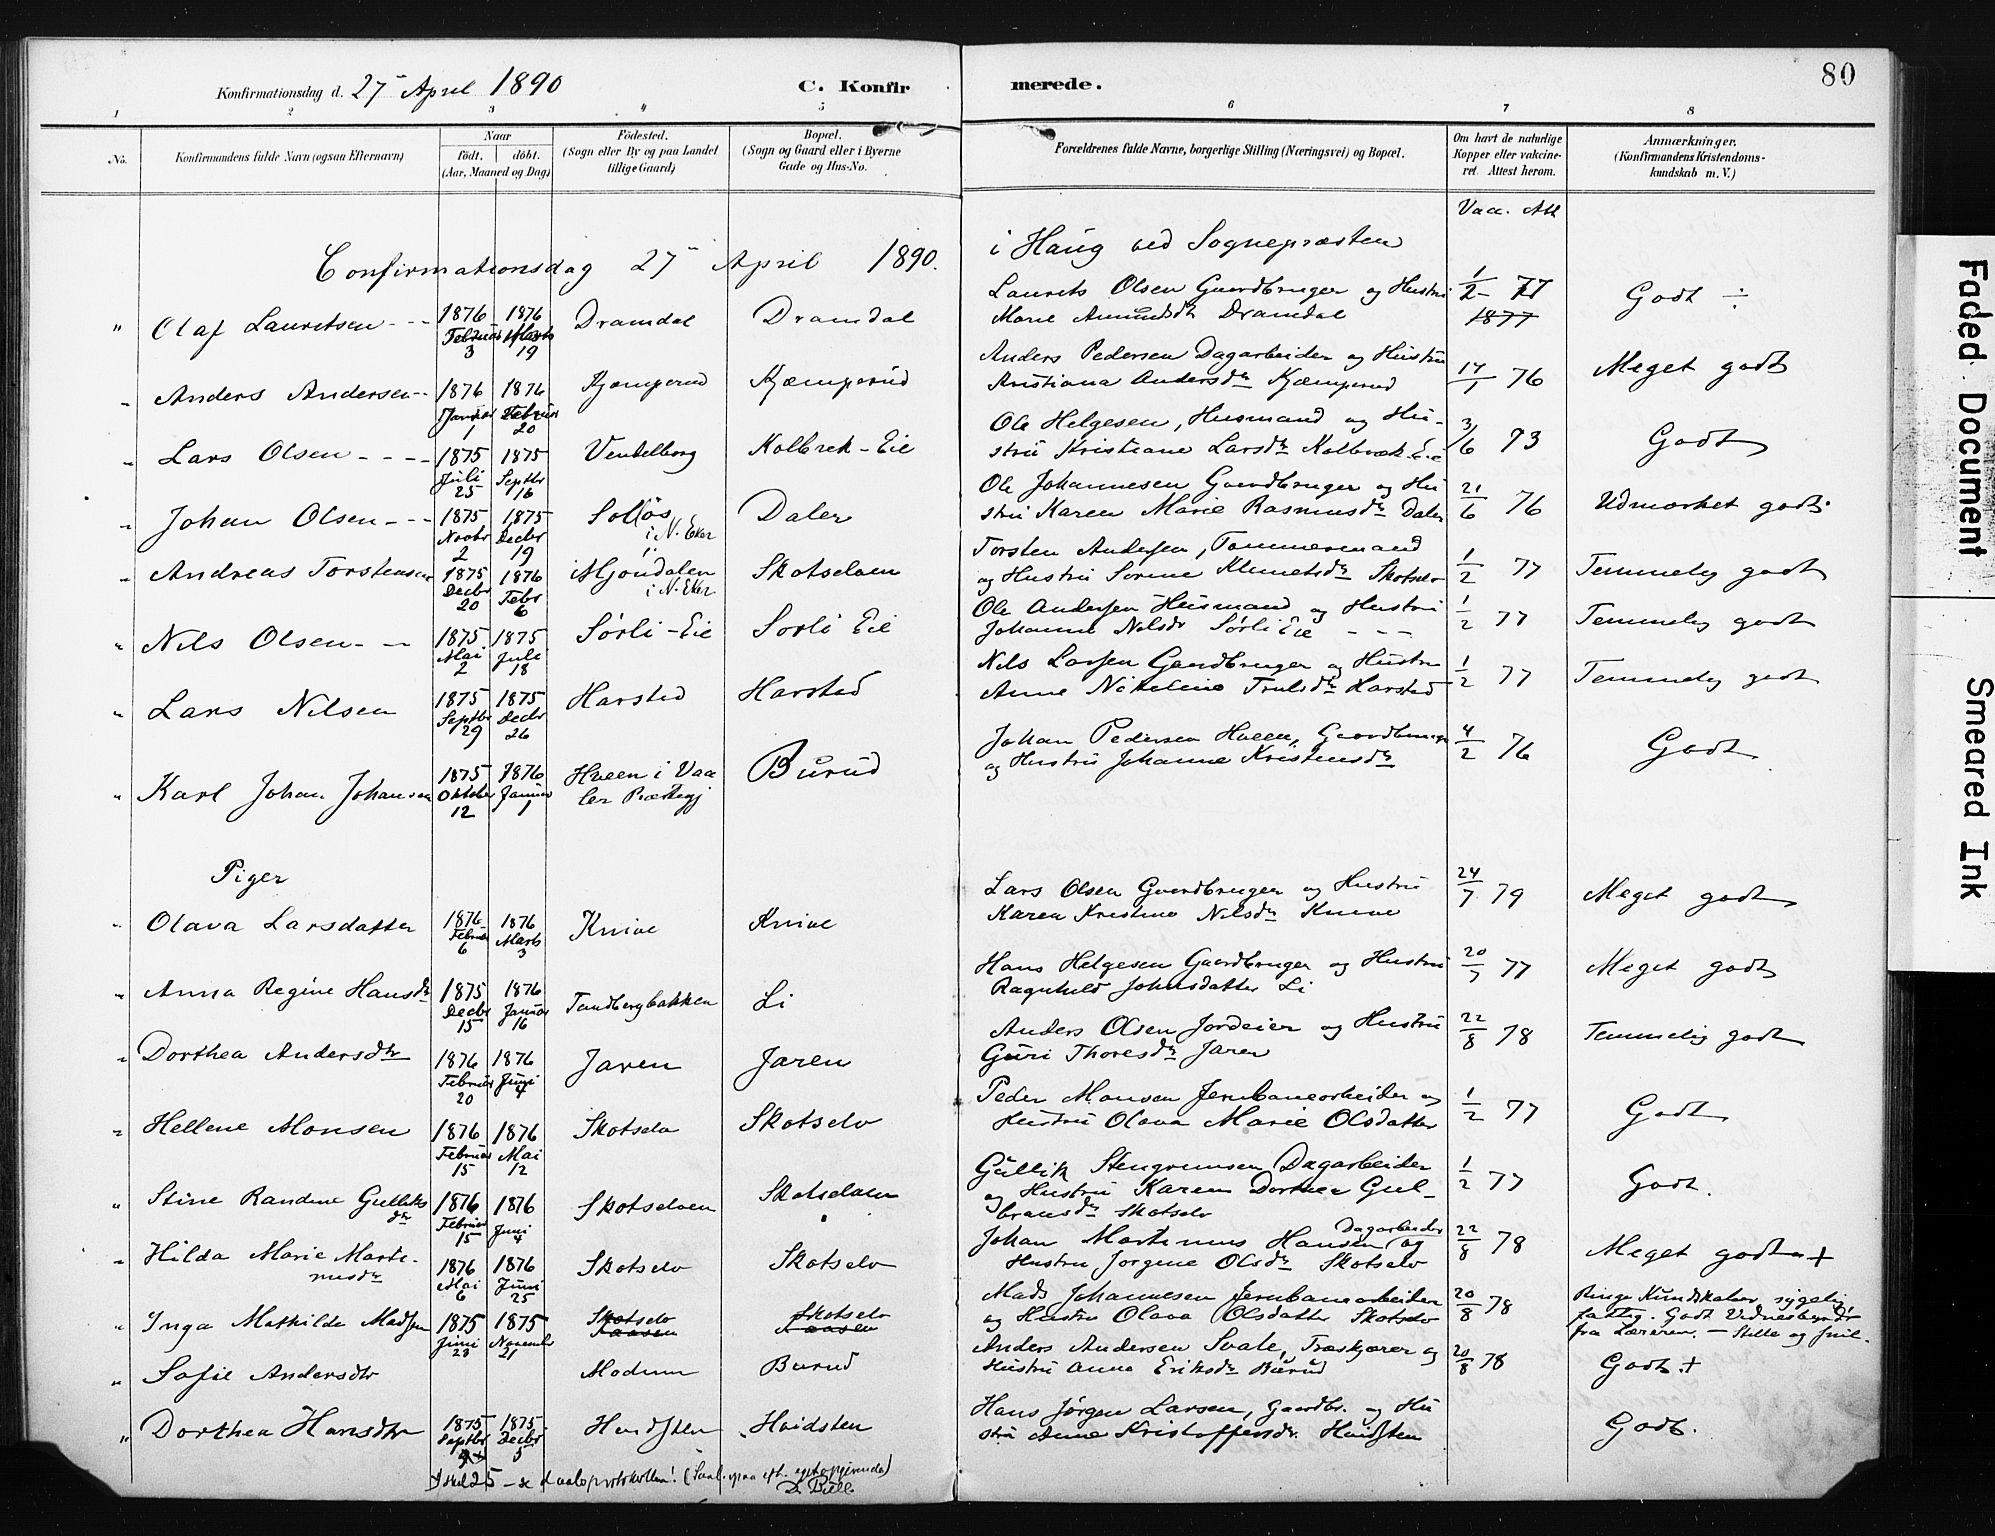 80
Konfirmationsdag d. 27 April 1890
C. Konfirmerede.
1 2 3 4 5 6 7 8
No.
Konfirmandens fulde Navn (ogsaa Efternavn)
Naar
födt. döbt.
(Aar, Maaned og Dag)
Födested.
(Sogn eller By og paa Landet
tillige Gaard)
Bopæl.
(Sogn og Gaard eller i Byerne
Gade og Hus-No.
Forældrenes fulde Navne, borgerlige Stilling (Næringsvei) og Bopæl.
Om havt de naturlige
Kopper eller vakcine-
ret. Attest herom.
Anmærkninger.
(Konfirmandens Kristendoms-
kundskab m. V.)
Vacc. Att
Confirmationsdag 27 April 1890. i Haug ved Sognepræsten
" Olaf Lauritsen - - - 1876 Februar 3 1876 Marts 19 Dramdal Dramdal
Laurits Olsen Gaardbruger og Hustru
Marie Amundsdtr Dramdal
1/2 - 77 1877 Godt ÷
" Anders Andersen - - 1876 Januar 1 1876 Februar 20 Kjæmperud Kjæmperud
Anders Pedersen Dagarbeider og Hustru
Kristiana Andersdtr Kjæmperud
17/1 76 Meget godt
" Lars Olsen - - - - 1875 Juli 25 1875 Septbr 16 Vendelborg Kolbrek - Eie
Ole Helgesen, Husmand og Hu-
stru Kristiane Larsdtr Kolbræk Eie
3/6 73 Godt
" Johan Olsen - - - 1875 Novbr 2 1875 Decbr 19 Solløs i N. Eker Daler
Ole Johannesen Gaardbruger og Hu
stru Karen Marie Rasmusdtr Daler
21/6 76 Udmærket godt
" Andreas Torstensen 1875 Decbr 20 1876 Febr 6 Mjöndalen i N. Eker Skotselven
Torsten Andersen, Tømmermand
og Hustru Sorine Klemetsdtr Skotselv
1/2 77 Temmelig godt
" Nils Olsen - - 1875 Mai 2 1875 Juli 18 Sørli - Eie Sorli Eie
Ole Andersen Husmand og Hustru
Johanne Nilsdtr Sørli Eie - - -
1/2 77 Temmelig godt
" Lars Nilsen 1875 Septbr 29 1875 Decbr 26 Harsted Harsted
Nils Larsen Gaardbruger og Hustru
Anne Nikoline Trulsdtr Harsted
1/2 77 Temmelig godt
" Karl Johan Johansen 1875 Oktober 12 1876 Januar 1 Hveen i Vaa
ler Præstegj Burud
Johan Pedersen Hveen, Gaardbruger
og Hustru Johanne Kristensdtr
4/2 76 Godt
Piger
" Olava Larsdatter 1876 Februar 6 1876 Marts 3 Knive Knive
Lars Olsen Gaardbruger og Hustru
Karen Kristine Nilsdtr Knive
24/7 79 Meget godt
" Anna Regine Hansdtr 1875 Decbr 15 1876 Januar 16 Tandbergbakken Li
Hans Helgesen Gaardbruger og Hustru
Ragnhild Johnsdatter Li
20/7 77 Meget godt
" Dorthea Andersdtr 1876 Februar 20 1876 Juni 4 Jaren Jaren
Anders Olsen Jordeier og Hustru
Guri Thoresdtr Jaren
22/8 78 Temmelig godt
" Hellene Monsen 1876 Februar 15 1876 Mai 12 Skotselv Skotselv
Peder Monsen Jernbanearbeider og
Hustru Olava Marie Olsdatter
1/2 77 Godt
" Stine Randine Gulliks
dtr 1876 Februar 15 1876 Juni 4 Skotselven Skotselven
Gullik Stengrimsen Dagarbeider
og Hustru Karen Dorthea Gul-
bransdtr Skotselv
1/2 77 Godt.
" Hilda Marie Marti-
nusdtr 1876 Mai 6 1876 Juni 25 Skotselv Skotselv
Johan Martinus Hansen Dagarbeider og
Hustru Jorgine Olsdtr Skotselv
22/8 78 Meget godt +
" Inga Mathilde Madsen 1875 Juni 23 1875 Novembr 21 Skotselv Kaasen Skotselv Kaasen
Mads Johannesen Jernbanearbeider
og Hustru Olava Olsdatter Skotselv
20/8 78 Ringe Kundskaber, sygelig,
fattig. Godt Vidnesbyrd
fra Læreren. - Stille og snil.
" Sofie Andersdtr Modum Burud
Anders Andersen Svale, Træskjærer og
Hustru Anna Eriksdtr Burud
20/8 78 Godt. +
" Dorthea Hansdtr 1875 Septbr 1875 Decbr 5 Hvidsten Hvidsten
Hans Jørgen Larsen, Gaardbr. og Hu
stru Anne Kristoffersdtr. Hvidsten
Godt.
25 - se daabsprotokollen!
Faded Document
Smeared Ink